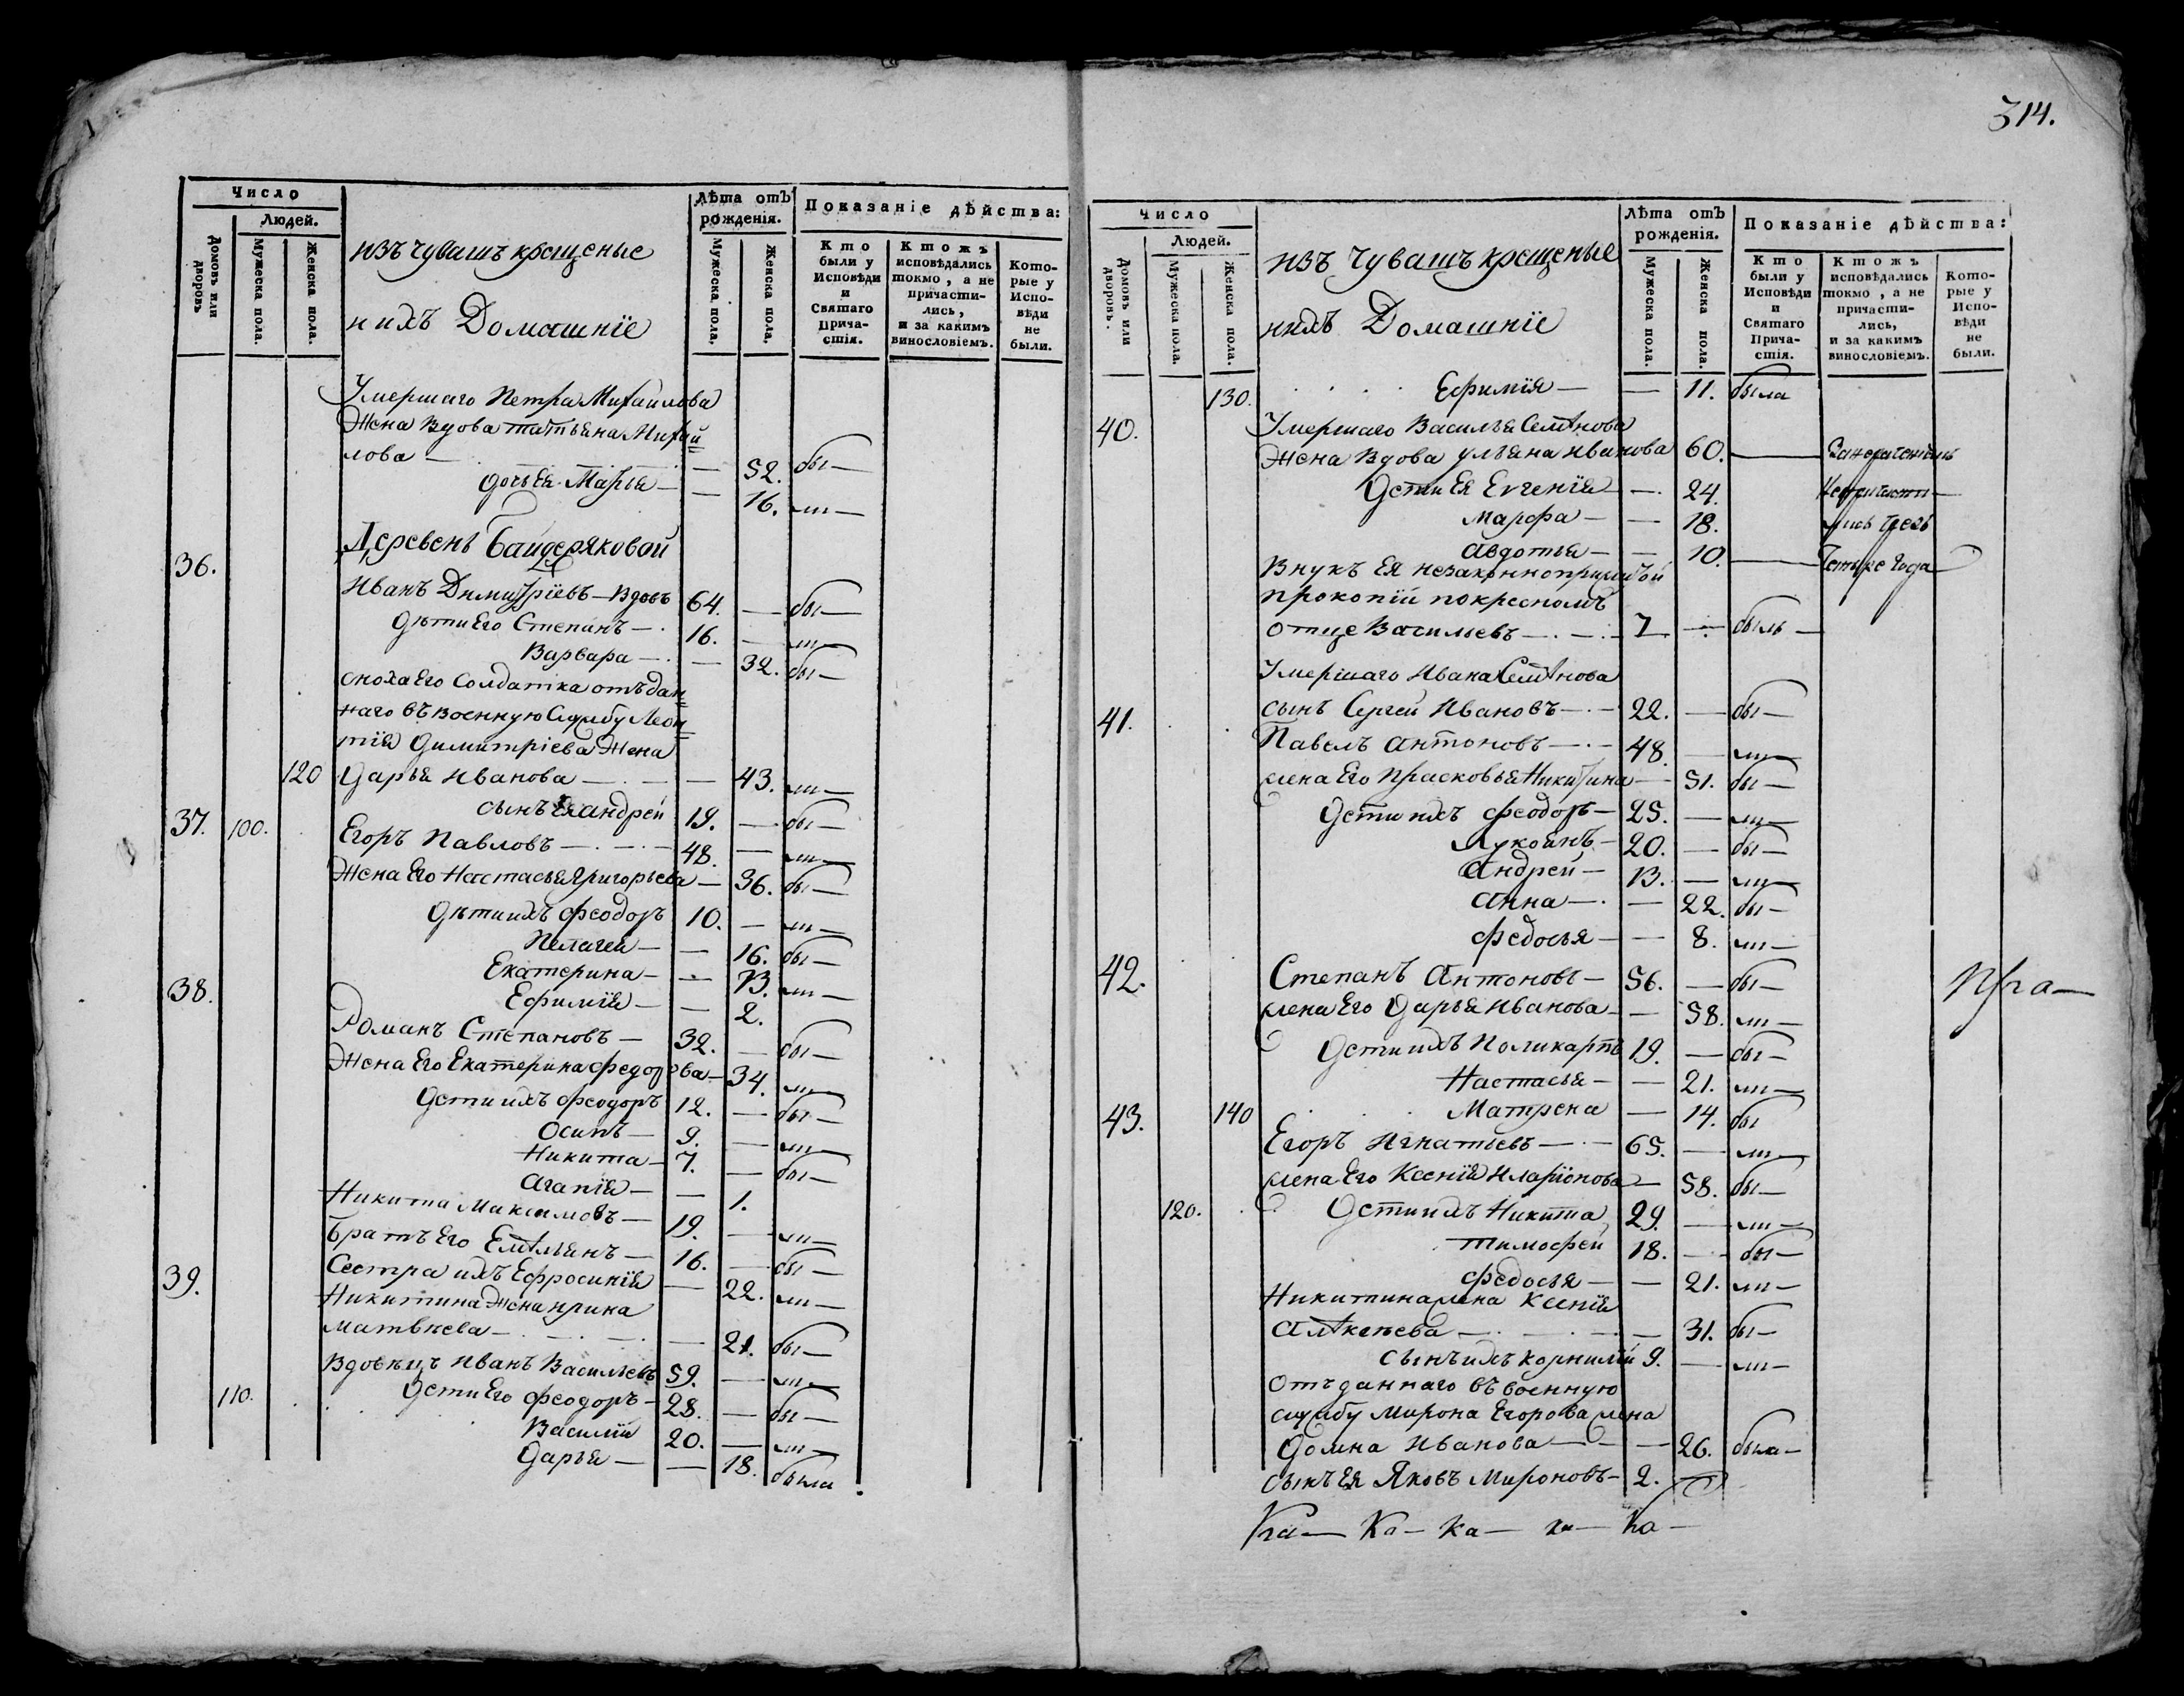 314.
Число
Людей.
Домовъ или дворовъ
Мужеска пола.
Женска пола.
изъ чувашъ крещеные
и ихъ Домашнїе
Лѣта отъ рожденія.
Мужеска пола.
Женска пола.
Показаніе дѣйства:
Кто были у Исповѣди и Святаго Причастія.
Ктожъ исповѣдались токмо, а не причастились, и за какимъ винословіемъ.
Которые у Исповѣди не были.
Умершаго Петра Михайлова
Жена вдова татьяна Михай
лова — — 52. бы—
дочь Ея Марья — — 16. ли—
Деревень Байдеряковой
36.
Иванъ Димитріевъ — вдовъ 64. — бы—
дѣти Его Степанъ — 16. — ли—
Варвара — — 32. бы—
сноха Его солдатка отъдан
наго въ военную службу Леон
тія Димитріева Жена
120 Дарья Иванова — — 43. ли—
сынъ Ея Андрей 19. — бы—
37. 100. Егоръ Павловъ — 48. — ли—
Жена Его Настасья Григорьева — 36. бы—
дѣти ихъ Феодоръ 10. — ли—
Пелагея — — 16. бы—
Екатерина — — 13. ли—
38. Ефимїя — — 2.
Романъ Степановъ — 32. — бы—
Жена Его Екатерина Федорова — 34. ли—
дети ихъ Феодоръ 12. — бы—
Осипъ — 9. — ли—
Никита — 7. — бы—
Агапія — — 1.
Никита Максимовъ — 19. — ли—
братъ Его Емѣльянъ — 16. — бы—
39. Сестра ихъ Ефросинїя — 22. ли—
Никитина Жена Ирина
Матвѣева — — 21. бы—
Вдовецъ Иванъ Васильевъ 59. — ли—
110. дети Его Феодоръ — 28. — бы—
Василїи 20. — ли—
Дарья — — 18. была
Число
Людей.
Домовъ или дворовъ.
Мужеска пола.
Женска пола.
изъ чувашъ крещеные
и ихъ Домашнїе
Лѣта отъ рожденія.
Мужеска пола.
Женска пола.
Показаніе дѣйства:
Кто были у Исповѣди и Святаго Причастія.
Ктожъ исповѣдались токмо, а не причастились, и за какимъ винословіемъ.
Которые у Исповѣди не были.
130. Ефимїя — — 11. была
40. Умершаго Василья Семѣнова
Жена вдова ульяна иванова 60. —
Дети Ея Евгенїя — — 24.
Марфа — — 18. лись чрезъ
Авдотья — — 10. — Четыре года
Внукъ Ея незаконноприжитой
Прокопїи по кресномъ
отце Васильевъ — 7 — былъ —
Умершаго Ивана Семѣнова
41. сынъ Сергей Ивановъ — 22. — бы—
Павелъ Антоновъ — 48. — ли—
жена Его Прасковья Никитина — 51. бы—
Дети ихъ Феодоръ — 25. — ли—
Лукоянъ — 20. — бы—
Андрей — 13. — ли—
Анна — — 22. бы—
Федосья — — 8. ли—
42. Степанъ Антоновъ — 56. — бы—
жена Его Дарья Иванова — — 58. ли—
Дети ихъ Поликарпъ 19. — бы—
Настасья — — 21. ли—
43. 140 Матрена — 14. бы
Егоръ Игнатьевъ — 65. — ли—
жена Его Ксенїя Иларїонова — 58. бы—
120. Дети ихъ Никита 29. — ли—
Тимофей 18. — бы—
Федосья — — 21. ли—
Никитина жена Ксенїя
Алѣксѣева — — 31. бы—
сынъ ихъ Корнилїй 9. — ли—
Отъданнаго въ военную
службу Мирона Егорова жена
Домна Иванова — — 26. была—
сынъ Ея Яковъ Мироновъ — 2. —
Ка— Ка— Ка—